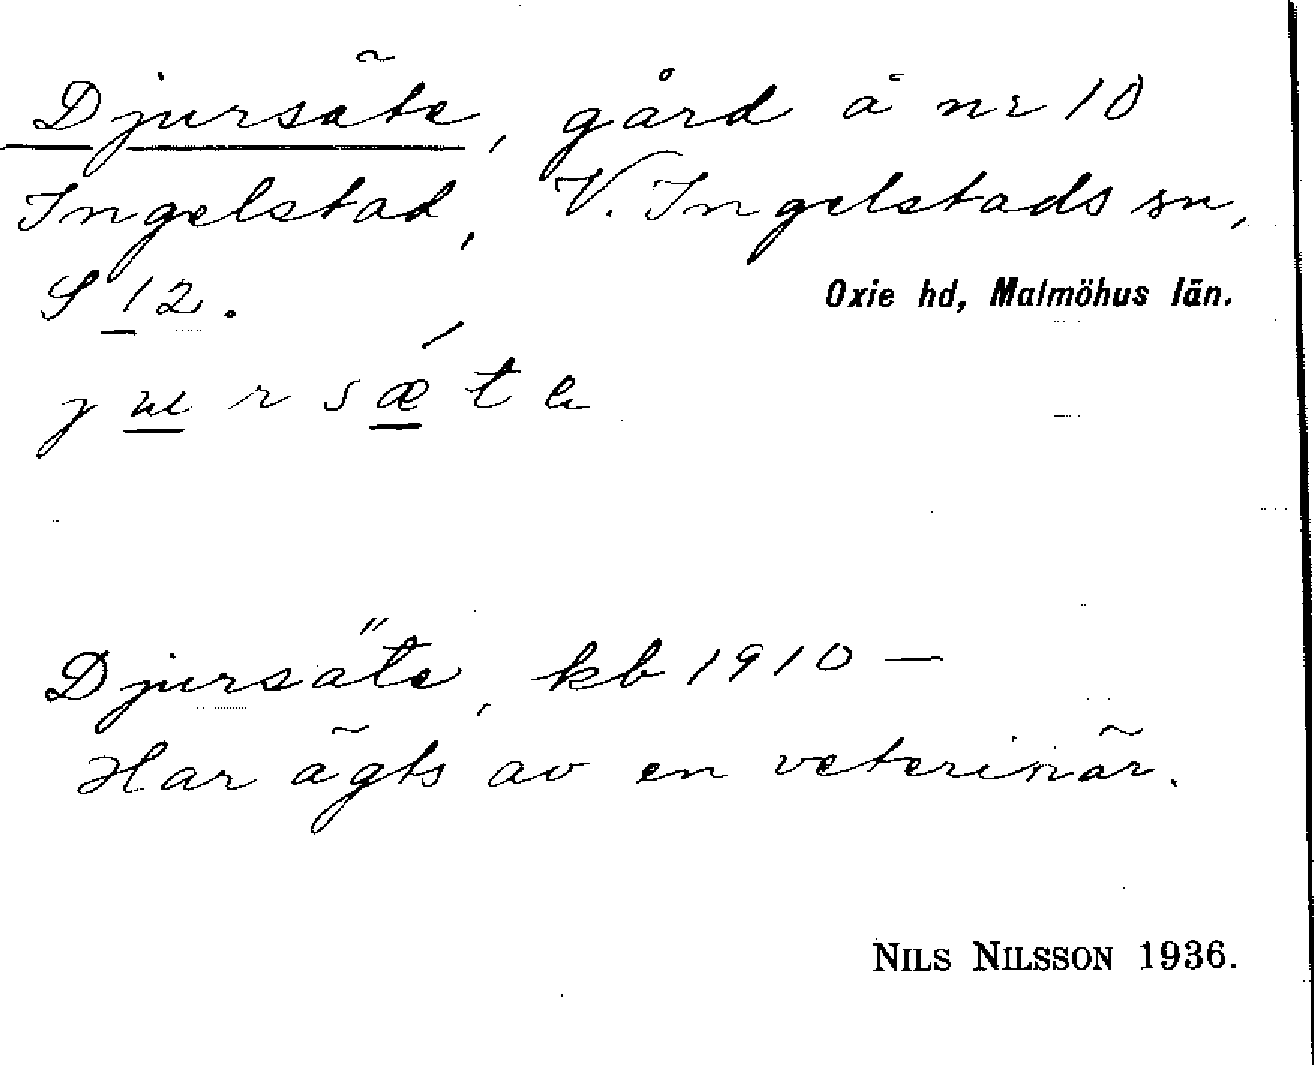 Djursäte, gård å nr 10
Ingelstad, V. Ingelstads sn,
S 12.
Oxie hd, Malmöhus län.
j u r s ǽ t e
Djursäte, kb 1910 —
Har ägts av en veterinär.
NILS NILSSON 1936.